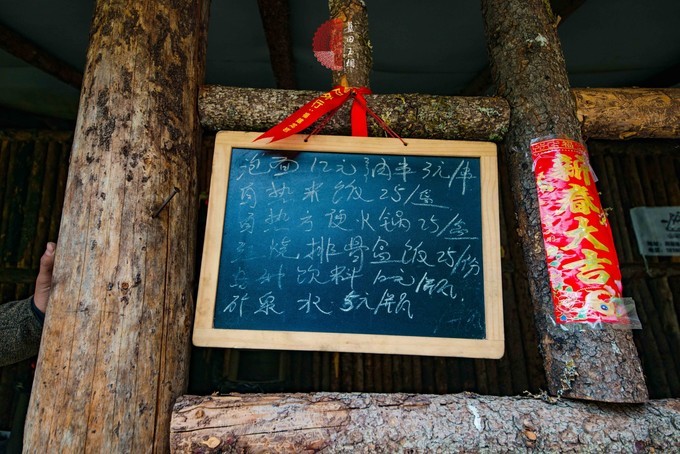 蓝田玉相
泡面 12元 卤牛 3元/串
自热米饭 25/盒
自热方便火锅 25/盒
红烧排骨盒饭 25/份
各种饮料 10元/瓶
矿泉水 5元/瓶
新春大吉